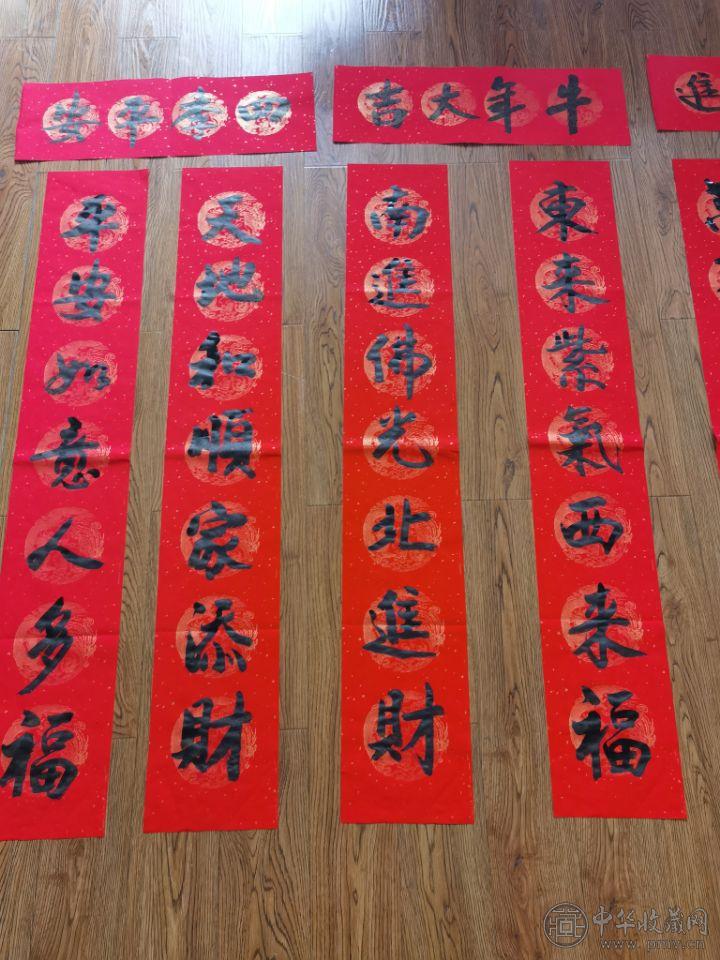 進
牛年大吉
東来紫氣西来福
南進佛光北進財
四季平安
天地和順家添財
平安如意人多福
中华收藏网
www.pmv.cn